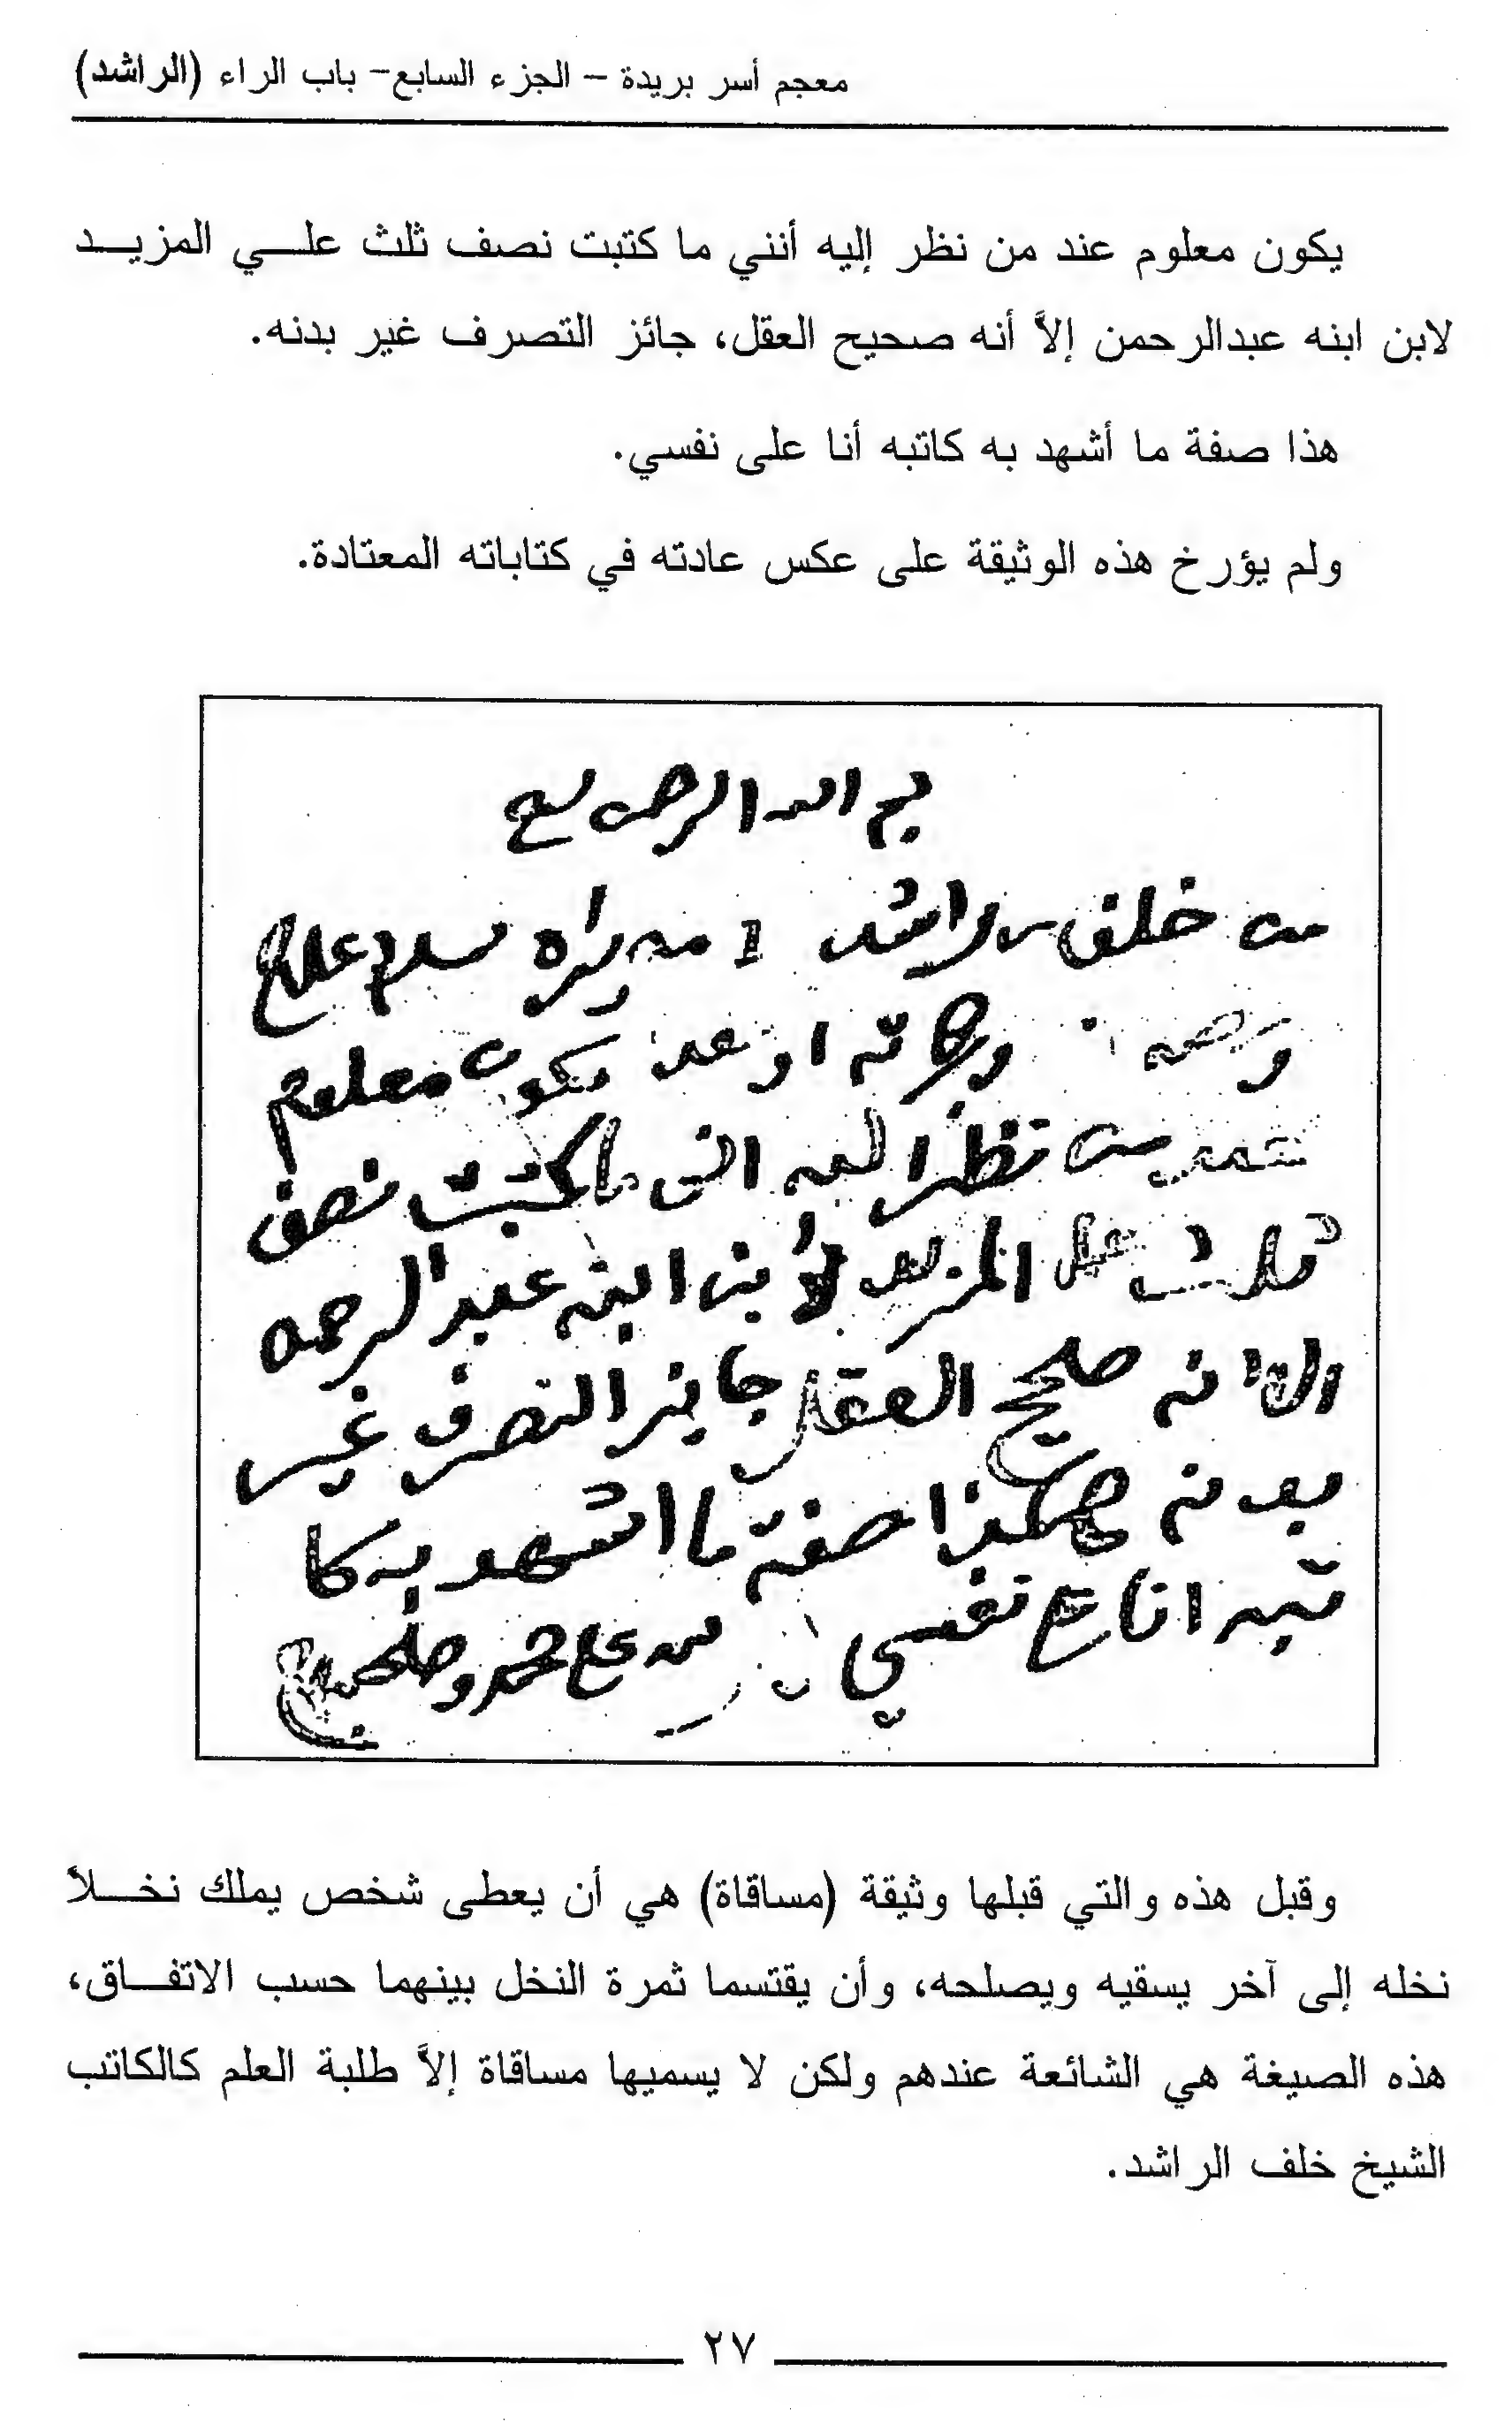 معجم أسر بريدة – الجزء السابع– باب الراء (الراشد)
يكون معلوم عند من نظر إليه أنني ما كتبت نصف ثلث علـــي المزيـــد
لابن ابنه عبدالرحمن إلاَّ أنه صحيح العقل، جائز التصرف غير بدنه.
هذا صفة ما أشهد به كاتبه أنا على نفسي.
ولم يؤرخ هذه الوثيقة على عكس عادته في كتاباته المعتادة.
بسم الله الرحمن
من خلف بن راشد من يراه سلام عليكم
ورحمة وبركاته او بعد يكون معلوم
عند من نظر اليه انني ما كتبت نصف
ثلث علي المزيد لابن ابنه عبد الرحمن
الا انه صحيح العقل جايز التصرف غير
بدنه هكذا صفة ما اشهد به كا
تبه انا على نفسي محمد وصلى
وقبل هذه والتي قبلها وثيقة (مساقاة) هي أن يعطى شخص يملك نخـــلاً
نخله إلى آخر يسقيه ويصلحه، وأن يقتسما ثمرة النخل بينهما حسب الاتفـــاق،
هذه الصيغة هي الشائعة عندهم ولكن لا يسميها مساقاة إلاَّ طلبة العلم كالكاتب
الشيخ خلف الراشد.
٢٧